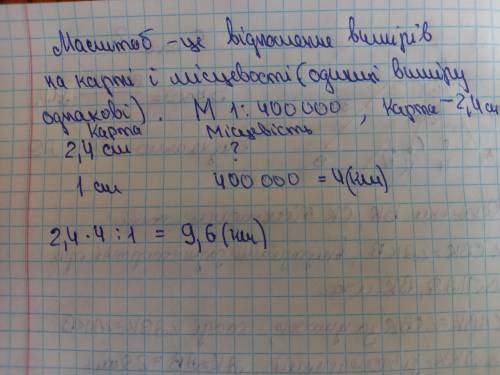 Масштаб - це відношення вимірів
на карті і місцевості (одиниці виміру
однакові). М 1:400000, Карта - 2,4 см
Карта Місцевість
2,4 см ?
1 см 400 000 = 4(км)
2,4 · 4 : 1 = 9,6 (км)